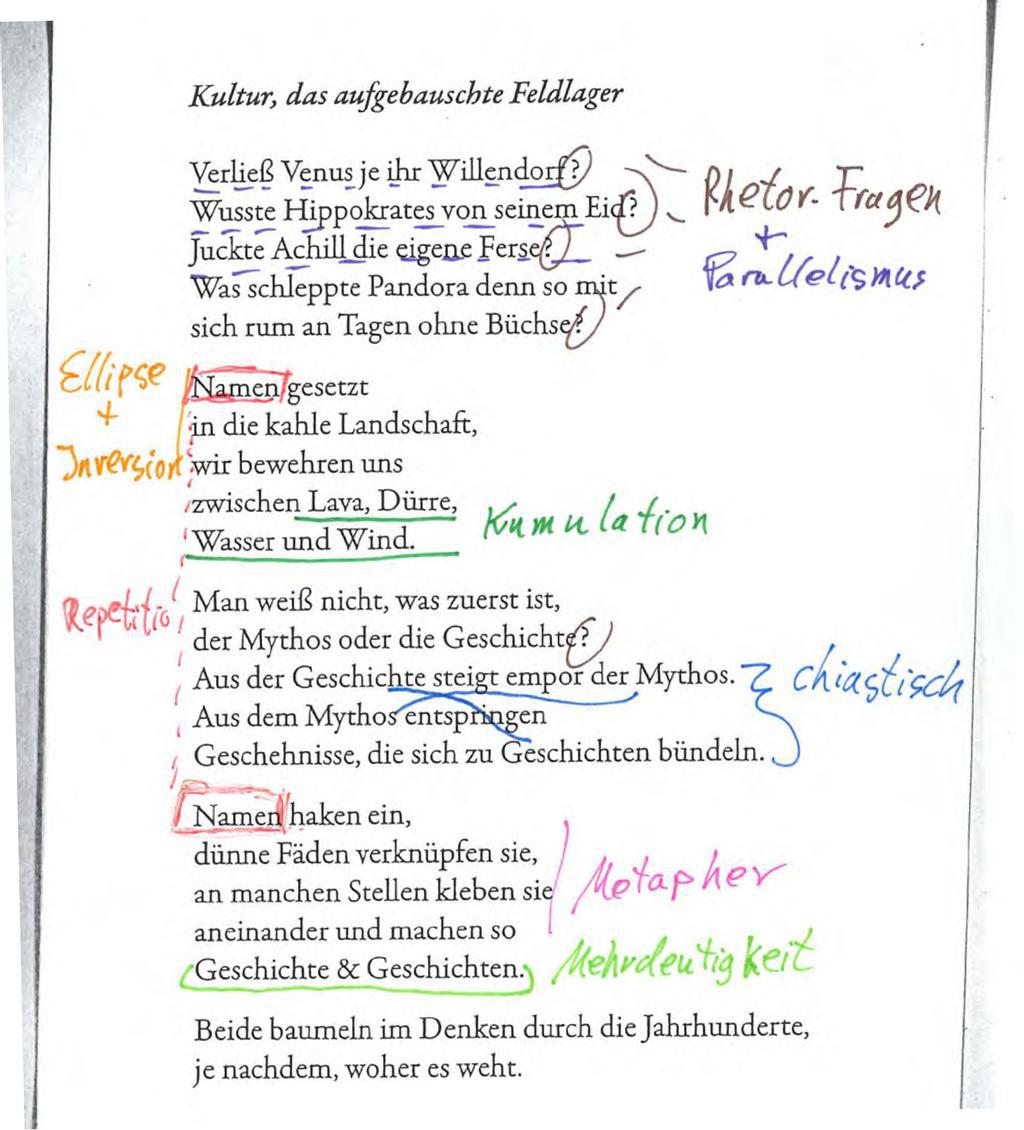 Kultur, das aufgebauschte Feldlager
Verließ Venus je ihr Willendorf?
Wusste Hippokrates von seinem Eid?
Rhetor. Fragen
+
Parallelismus
Juckte Achill die eigene Ferse?
Was schleppte Pandora denn so mit
sich rum an Tagen ohne Büchse?
Ellipse
+
Inversion
Namen gesetzt
in die kahle Landschaft,
wir bewehren uns
zwischen Lava, Dürre,
Wasser und Wind.
Kumulation
Repetitio
Man weiß nicht, was zuerst ist,
der Mythos oder die Geschichte?
Aus der Geschichte steigt empor der Mythos.
Aus dem Mythos entspringen
Geschehnisse, die sich zu Geschichten bündeln.
chiastisch
Namen haken ein,
dünne Fäden verknüpfen sie,
an manchen Stellen kleben sie
aneinander und machen so
Geschichte & Geschichten.
Metapher
Mehrdeutigkeit
Beide baumeln im Denken durch die Jahrhunderte,
je nachdem, woher es weht.